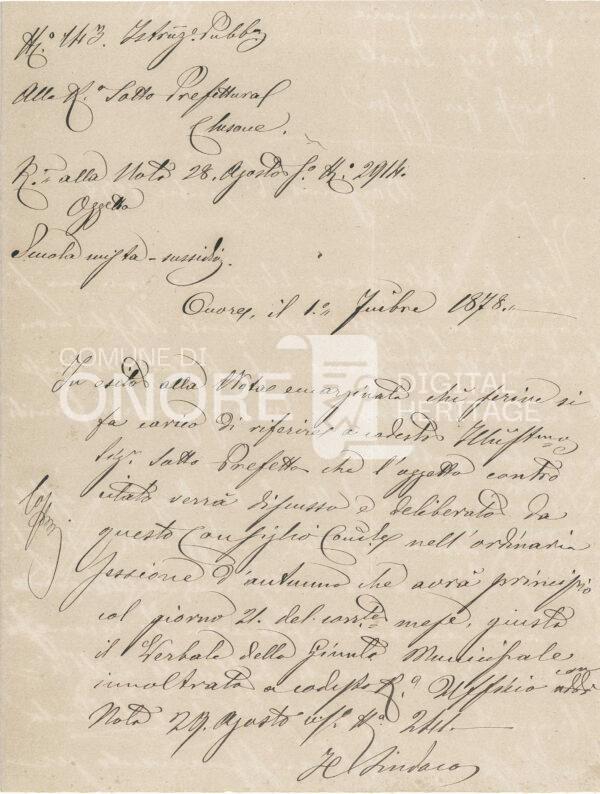 N.º 143. Istruz.e Pubb.a
Alla R.a Sotto Prefettura
Clusone.
R.a alla Nota 28. Agosto s.º N.º 2914.
Oggetto
Scuola mista - sussidio.
Onore, il 1.º 7mbre 1878.
COMUNE DI
ONORE
DIGITAL
HERITAGE
In esito alla Nota emarginata chi scrive si
fa carico di riferire a codesto Illustmo
Sigr. Sotto Prefetto che l'oggetto contro
citato verrà discusso e deliberato da
questo Consiglio Comle nell'ordinaria
Sessione d'autunno che avrà principio
col giorno 21. del corrte mese, giusta
il Verbale della Giunta Municipale
innoltrato a codesto R.º Ufficio con
Nota 29. Agosto N.º 244.
Il Sindaco